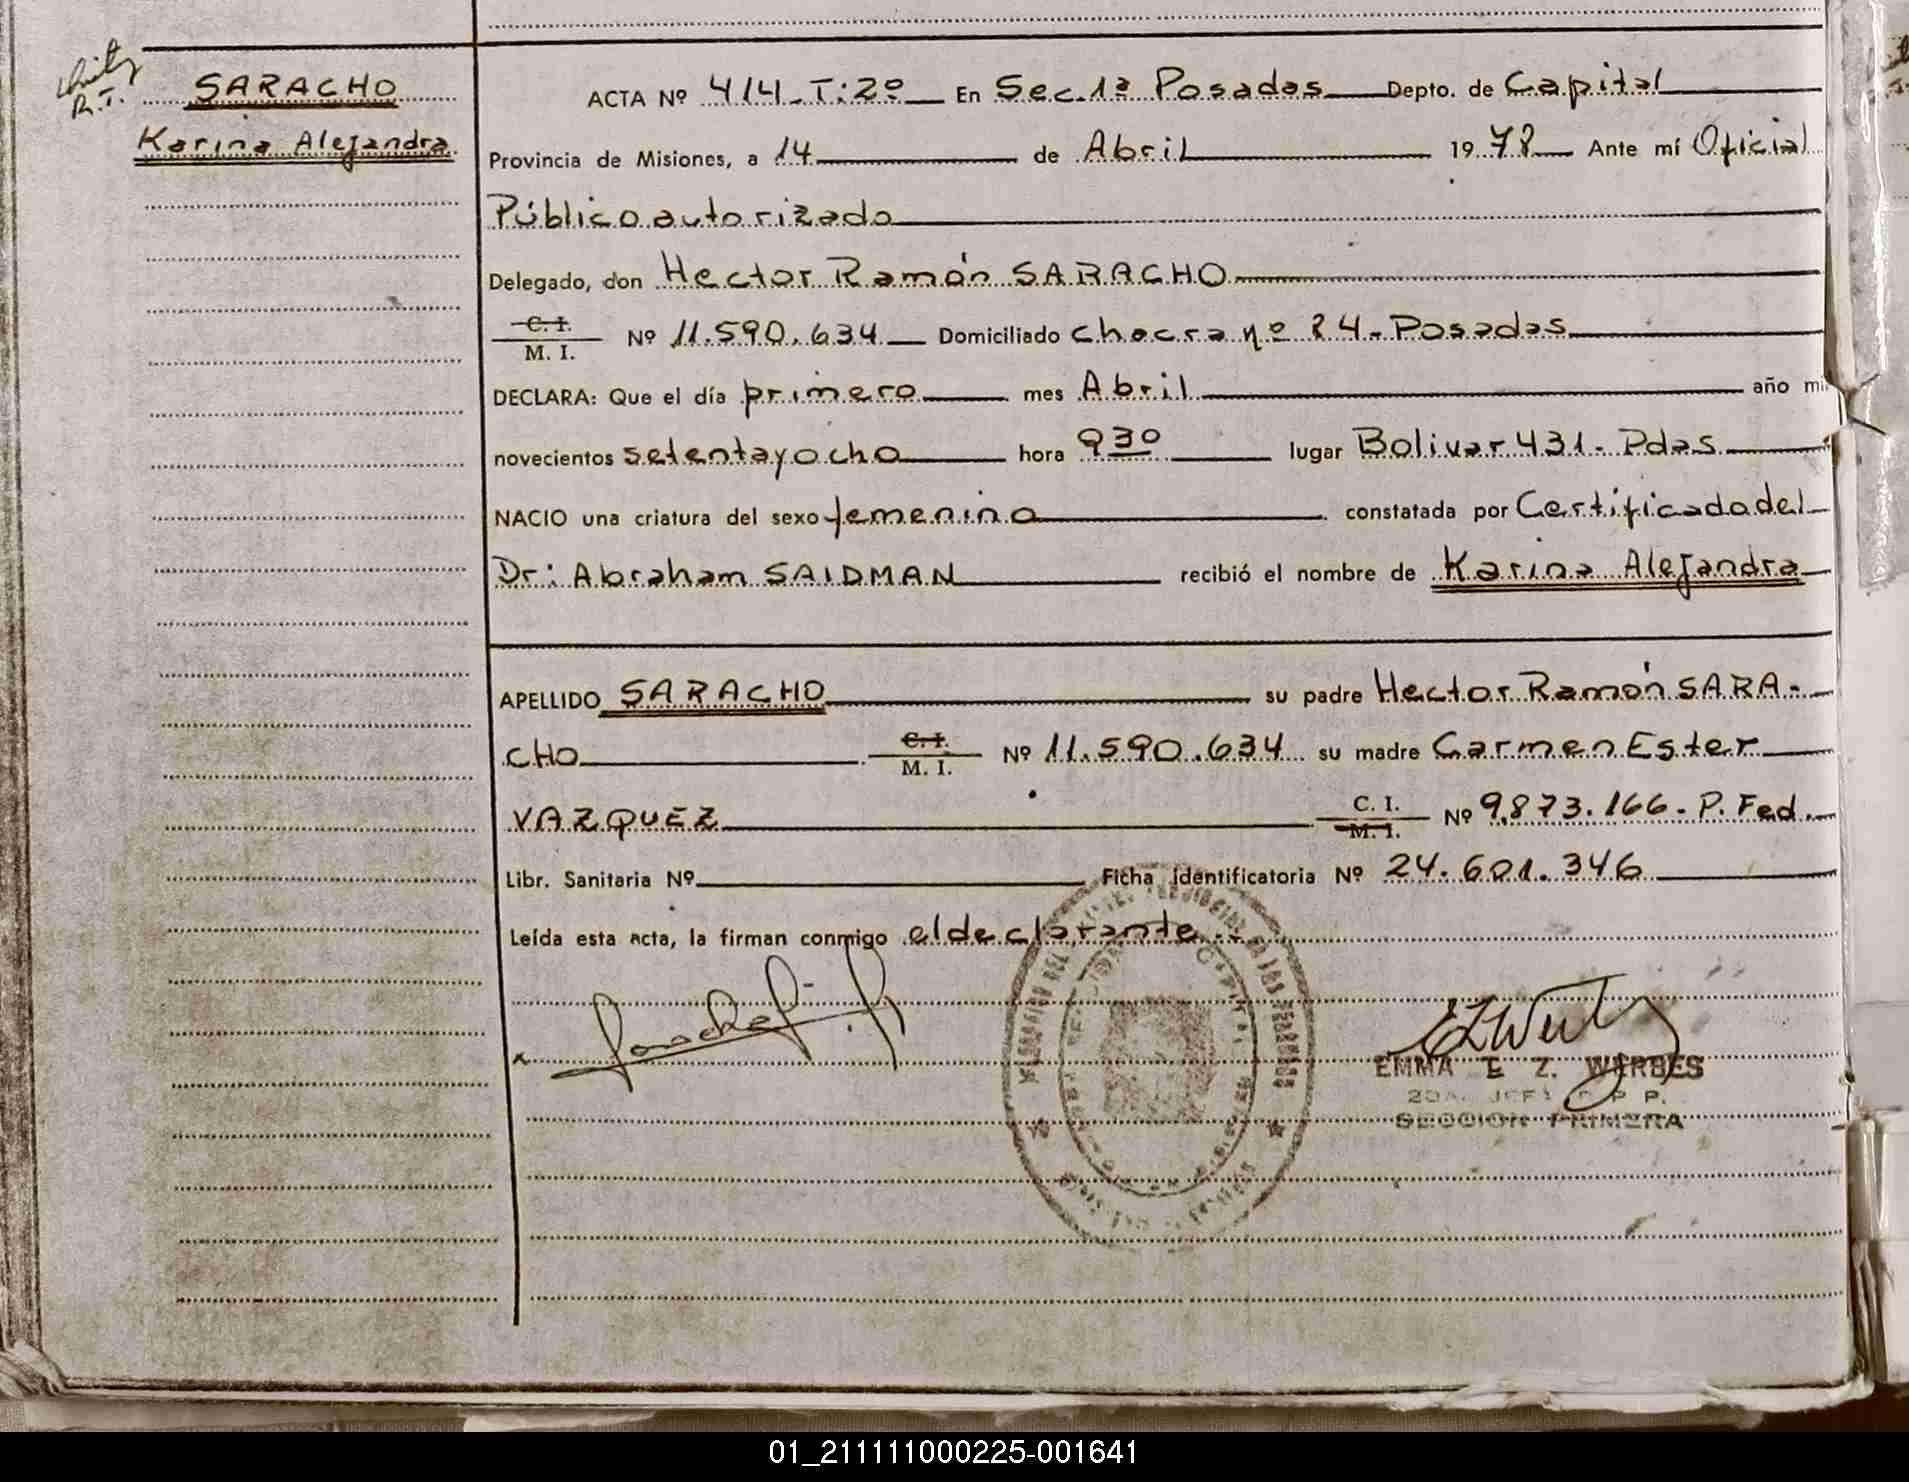 SARACHO
Karina Alejandra
ACTA Nº 414-T:2º En Sec.1ª Posadas Depto. de Capital
Provincia de Misiones, a 14 de Abril 1978 Ante mí Oficial
Público autorizado
Delegado, don Hector Ramón SARACHO
C. I.
M. I.
Nº 11.590.634 Domiciliado chacra nº 24-Posadas
DECLARA: Que el día primero mes Abril año mil
novecientos setentayocho hora 9 30 lugar Bolivar 431- Pdas
NACIO una criatura del sexo femenino constatada por Certificado del
Dr: Abraham SAIDMAN recibió el nombre de Karina Alejandra
APELLIDO SARACHO su padre Hector Ramón SARA-
CHO C. I. M. I. Nº 11.590.634 su madre Carmen Ester
VAZQUEZ C. I. M. I. Nº 9.873.166- P. Fed.
Libr. Sanitaria Nº Ficha Identificatoria Nº 24.601.346
Leída esta acta, la firman conmigo el declarante..
EMMA E Z. WERBES
2DA. JEFA R P P.
SECCION PRIMERA
01_211111000225-001641